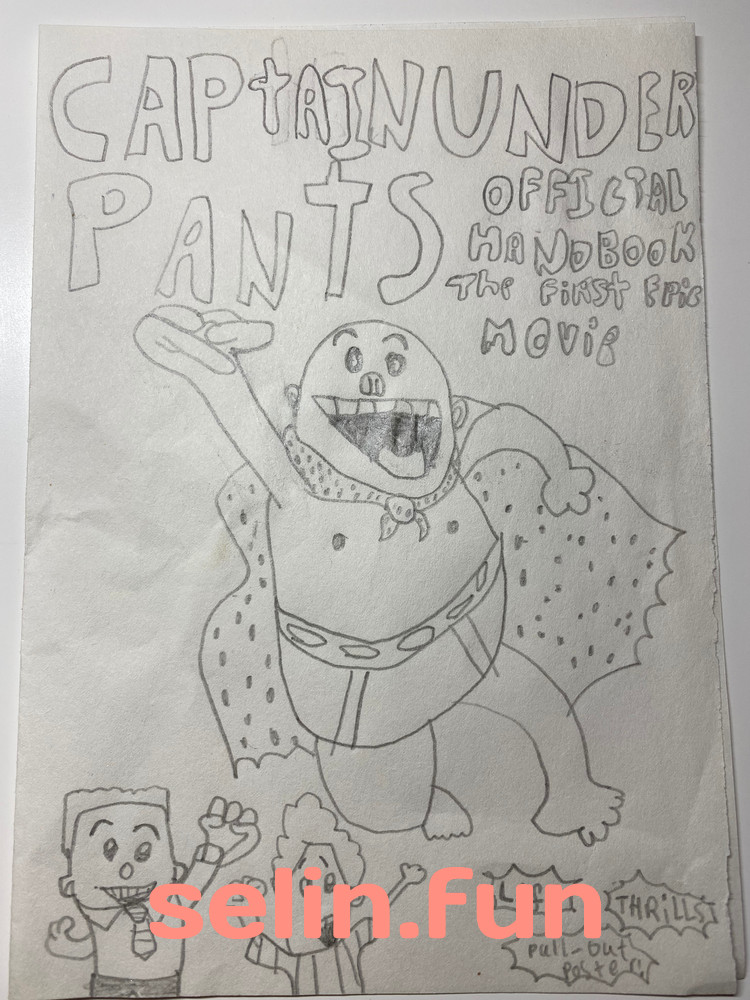 CAPtAIN UNDER
PANTS
OFFICIAL
HANDBOOK
The FiRST EPic
MOViE
THRiLLS
pull-out
poster
selin.fun